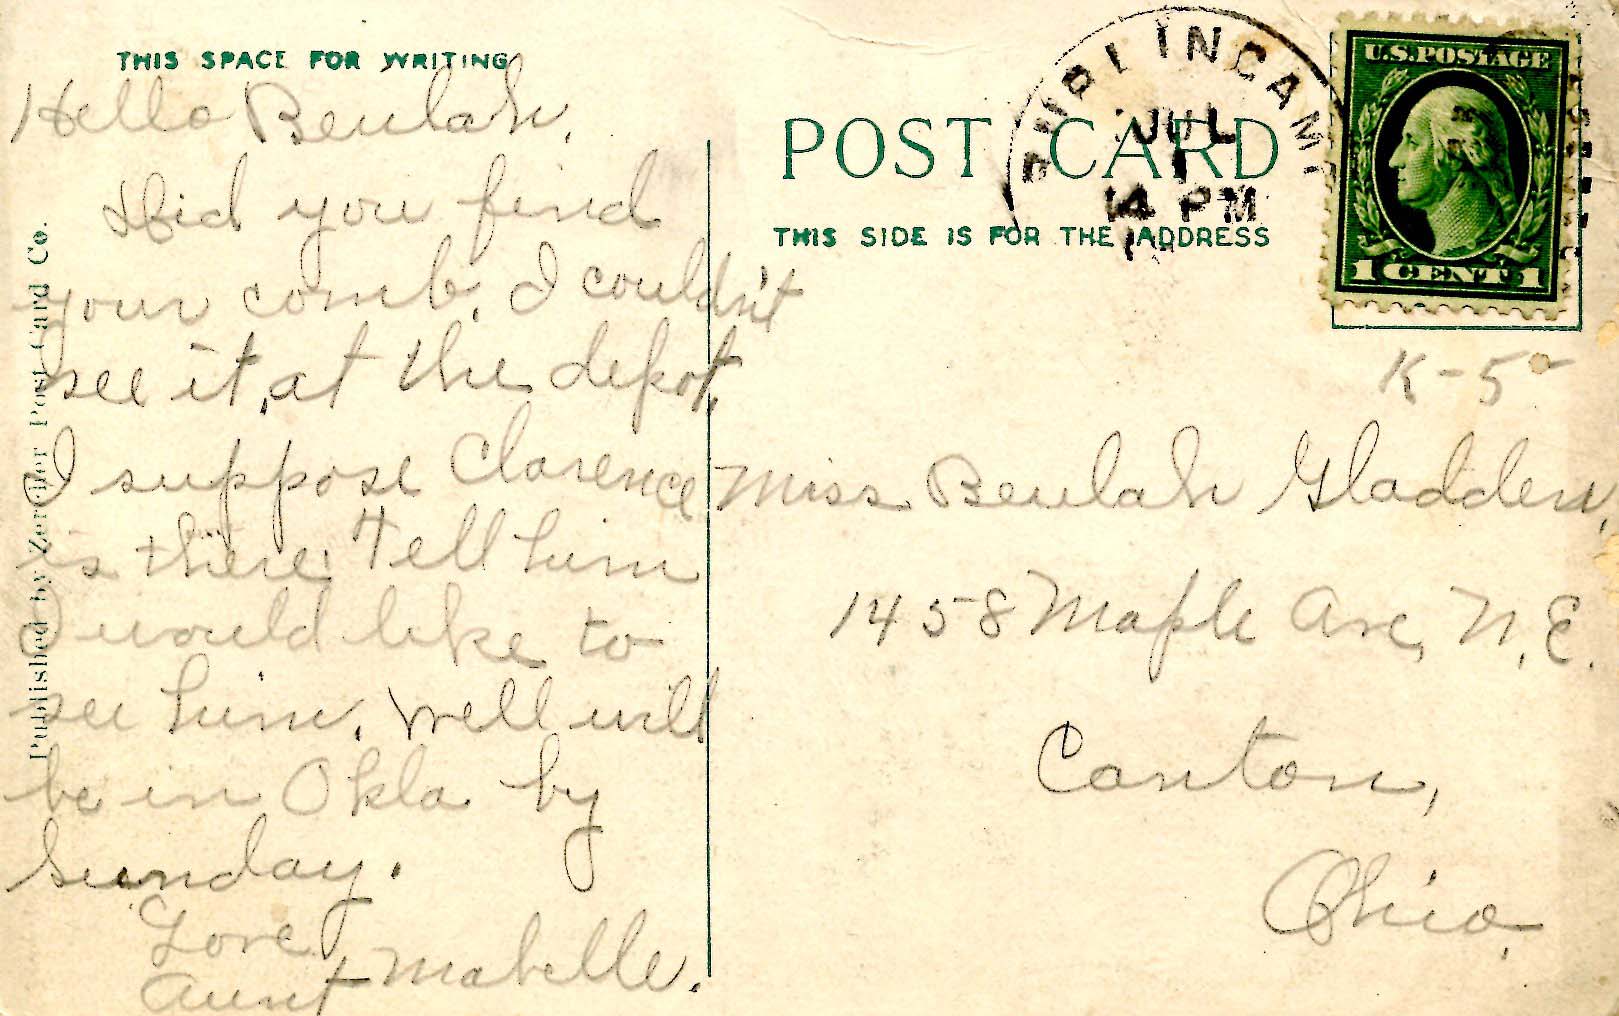 THIS SPACE FOR WRITING
Hello Beulah,
Did you find
your comb. I couldn't
see it, at the depot.
I suppose Clarence
is there. Tell him
I would like to
see him. Well will
be in Okla by
Sunday.
Love
Aunt Mabelle.
Published by Zercher Post Card Co.
POST CARD
THIS SIDE IS FOR THE ADDRESS
JUL
1
4 PM
U.S. POSTAGE
1 CENT 1
K-5
Miss Beulah Gladden,
1458 Maple Ave, N.E.
Canton,
Ohio.